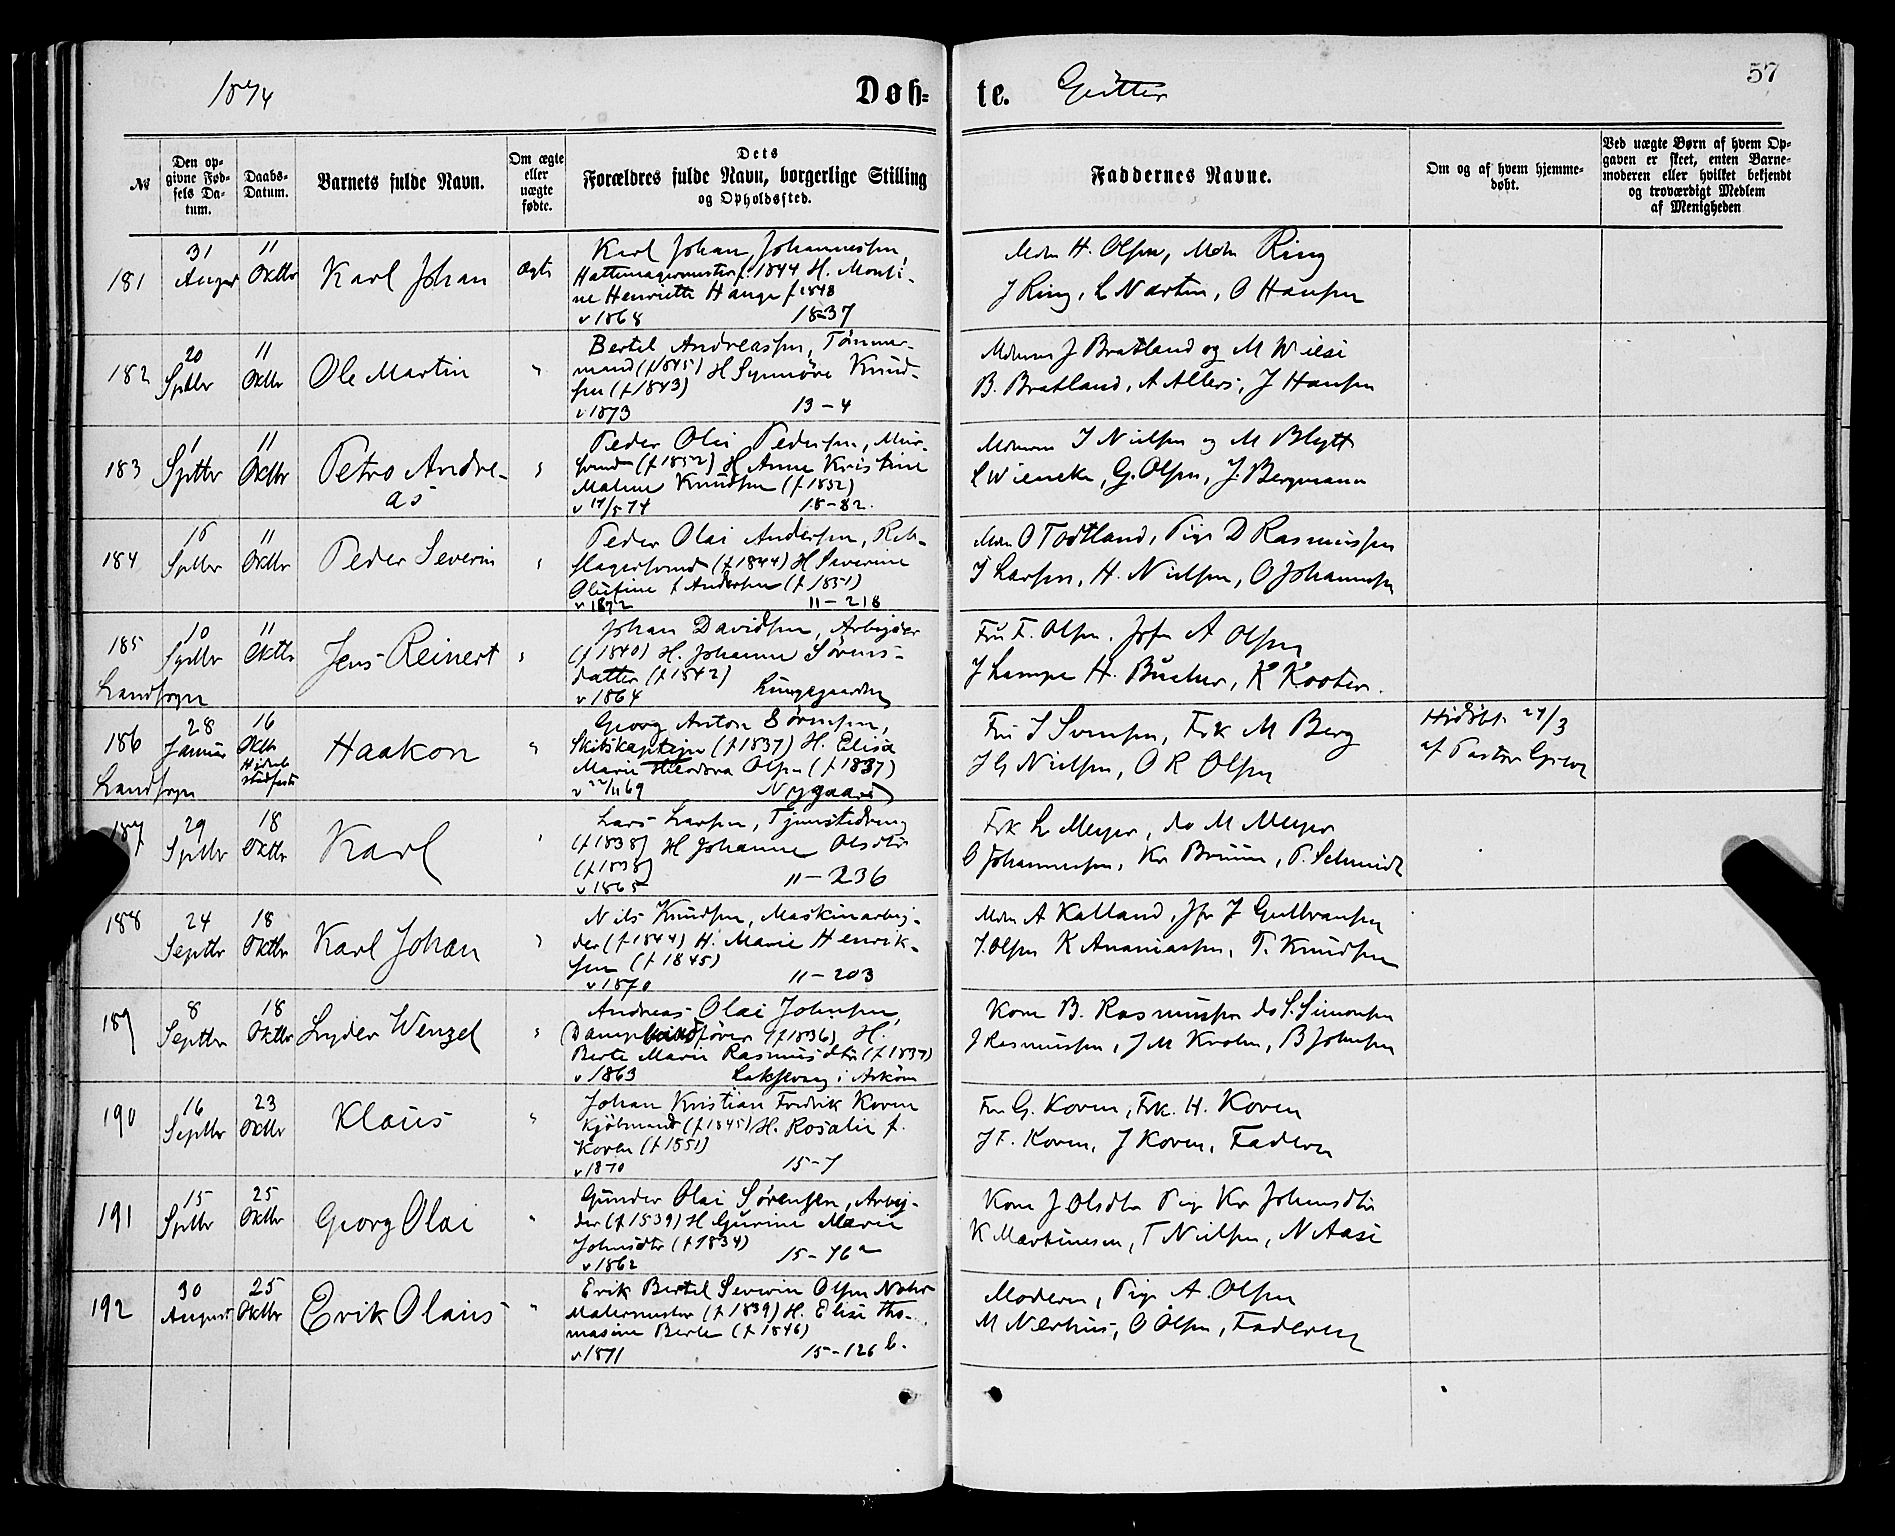 1874
Døb-
te.
Gutter
57
№
Den op-
givne Fød-
sels Da-
tum.
Daabs-
Datum.
Barnets fulde Navn.
Om ægte
eller
uægte
fødte.
Dets
Forældres fulde Navn, borgerlige Stilling
og Opholdssted.
Faddernes Navne.
Om og af hvem hjemme-
døbt.
Ved uægte Børn af hvem Op-
gaven er skeet, enten Barne-
moderen eller hvilket bekjendt
og troværdigt Medlem
af Menigheden
181
31
August
11
Oktbr
Karl Johan
Ægte
Karl Johan Johannessen,
Hattemagermester f. 1844 H. Monti-
ne Henriette Hauge f 1848
v 1868 18-37
Mdm H. Olsen, Mdm Ring
J Ring, L Narten, O Hansen
182
20
Sptbr
11
Oktbr
Ole Martin
"
Bertel Andreassen, Tømmer-
mand (f 1845) H Synnøve Knud-
sen (f 1843)
v 1873 13-4
Mdmm J Bratland og M Wiese
B. Bratland, A Allers, J Hansen
183
1
Sptbr
11
Oktbr
Petro Andre-
as
"
Peder Olai Pedersen, Mur-
svend (f 1852) H Anne Kristine
Malene Knudsen (f 1852)
v 17/5 74 18-82.
Mdmm J Nielsen og M Blytt
L Wieneke, G. Olsen, J. Bergmann
184
16
Sptbr
11
Oktbr
Peder Severin
"
Peder Olai Andersen, Reb-
slagersvend (f 1844) H Severine
Olufine f Andersen (f 1851)
v 1872 11-218
Mdm O Todtland, Pige D Rasmussen
J Larsen, H. Nielsen, O Johannesen
185
Landsogn
10
Sptbr
11
Oktbr
Jens Reinert
"
Johan Davidsen, Arbeider
(f 1840) H. Johanne Sørens-
datter (f 1842)
v 1864 Lungegaarden
Fru F. Olsen. Jfr A Olsen
J Lampe H. Bucher, K Kooter.
186
Landsogn
28
Januar
16
Oktb
Hjdaab
stadfæst
Haakon
"
Georg Anton Sørensen,
Skibskaptejn (f 1837) H. Elisa
Marie Theodora Olsen (f 1837)
v 22/11 69 Nygaard
Fru J Svensen, Frk M Berg
J G Nielsen, O R Olsen
Hjdøbt. 27/3
187
29
Sptbr
18
Oktbr
Karl
"
Lars Larsen, Tjenestedreng
(f 1838) H Johanne Olsdtr
(f 1838)
v 1865 11-236
Frk L Meyer, do M Meyer
O Johannesen, Kr Bruun, P. Schmidt
188
24
Septbr
18
Oktbr
Karl Johan
"
Nils Knudsen, Maskinarbej-
der (f 1844) H. Marie Henrik-
sen (f 1845)
v 1870 11-203
Mdm A Kalland, Jfr J Gulbransen
J. Olsen K Ananiassen, T. Knudsen
189
8
Septbr
18
Oktbr
Lyder Wenzel
"
Andreas Olai Johnsen,
Dampskibsfører (f 1836) H.
Berte Marie Rasmusdtr (f 1837)
v 1863 Laksevaag i Askøen
Kone B. Rasmussen do S. Simonsen
J Rasmussen, J M Krohn, B Johnsen
190
16
Septbr
23
Oktbr
Klaus
"
Johan Kristian Fredrik Koren
Kjøbmand (f 1845) H. Rosalie f.
Koren (f 1851)
v 1870 15-7
Fru G. Koren, Frk. H. Koren
J F. Koren, J Koren, Faderen
191
15
Sptbr
25
Oktbr
Georg Olai
"
Gunder Olai Sørensen, Arbej-
der (f 1839) H Gurine Marie
Johnsdtr (f 1834)
v 1862 15-76 a
Kone J Olsdtr Pige Kr Johnsdtr
K Martinesen, T Nielsen, N Aase
192
30
August
25
Oktbr
Erik Olaus
"
Erik Bertel Severin Olsen Nohr
Malermester (f 1839) H. Elise Tho-
masine Berle (f 1846)
v 1871 15-126 b.
Moderen, Pige A. Olsen
M Nerhus, O Olsen, Faderen